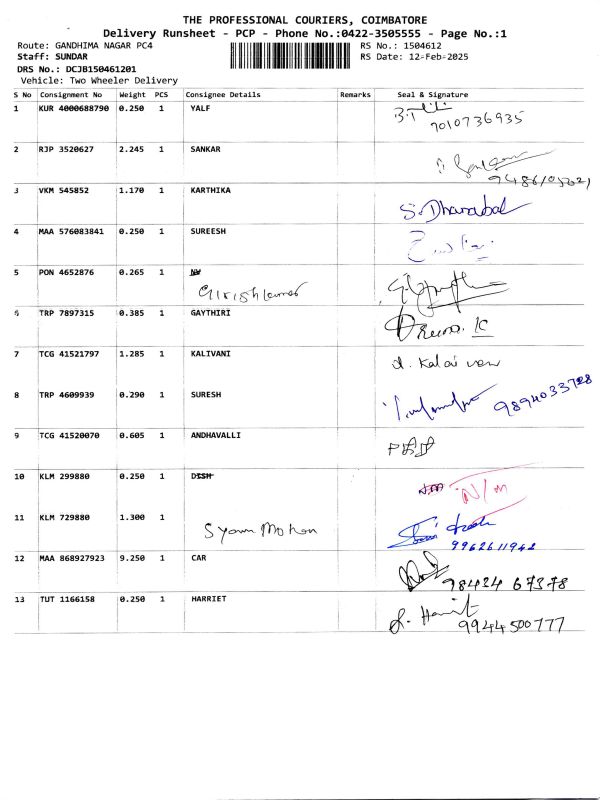 THE PROFESSIONAL COURIERS, COIMBATORE
Delivery Runsheet - PCP - Phone No.:0422-3505555 - Page No.:1
Route: GANDHIMA NAGAR PC4 RS No.: 1504612
Staff: SUNDAR RS Date: 12-Feb-2025
DRS No.: DCJB150461201
Vehicle: Two Wheeler Delivery
S No Consignment No Weight PCS Consignee Details Remarks Seal & Signature
1 KUR 4000688790 0.250 1 YALF
7010736935
2 RJP 3520627 2.245 1 SANKAR
3 VKM 545852 1.170 1 KARTHIKA S. Dhanabal
4 MAA 576083841 0.250 1 SUREESH
5 PON 4652876 0.265 1 Girish kumar
6 TRP 7897315 0.385 1 GAYTHIRI
7 TCG 41521797 1.285 1 KALIVANI
8 TRP 4609939 0.290 1 SURESH 9894033728
9 TCG 41520070 0.605 1 ANDHAVALLI
10 KLM 299880 0.250 1 DISH N/M
11 KLM 729880 1.300 1 Syam Mohan
9962611942
12 MAA 868927923 9.250 1 CAR 98424 67378
13 TUT 1166158 0.250 1 HARRIET
9944500777